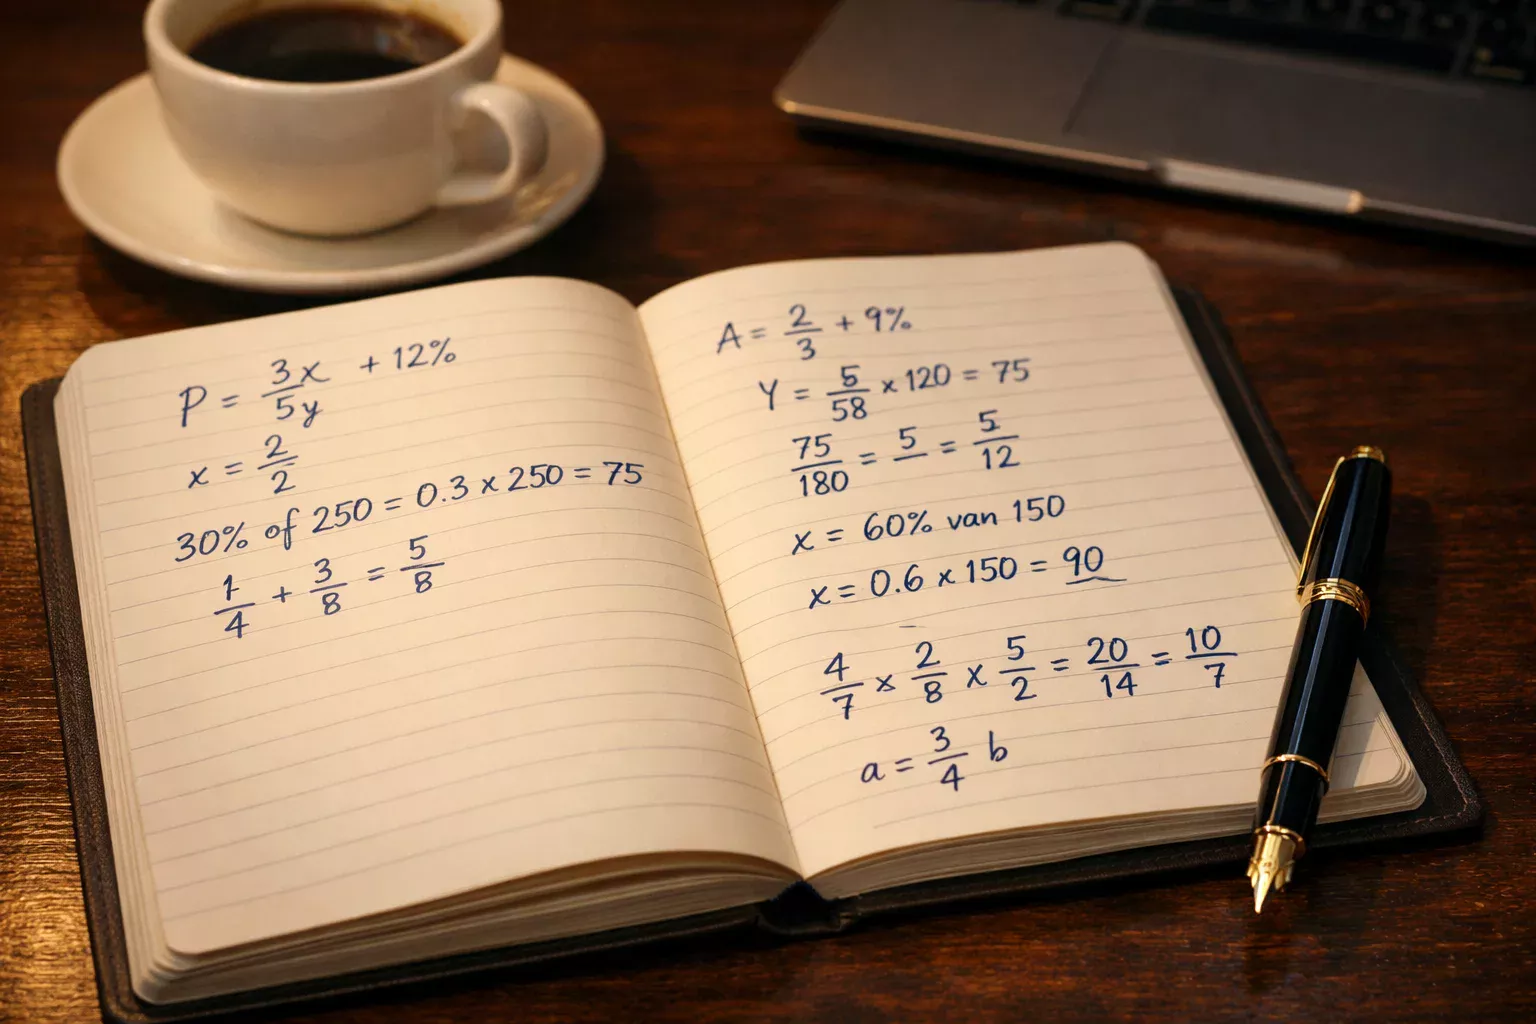 P = 3x/5y + 12%
x = 2/2
30% of 250 = 0.3 x 250 = 75
1/4 + 3/8 = 5/8
A = 2/3 + 9%
Y = 5/58 x 120 = 75
75/180 = 5/ = 5/12
x = 60% van 150
x = 0.6 x 150 = 90
4/7 x 2/8 x 5/2 = 20/14 = 10/7
a = 3/4 b